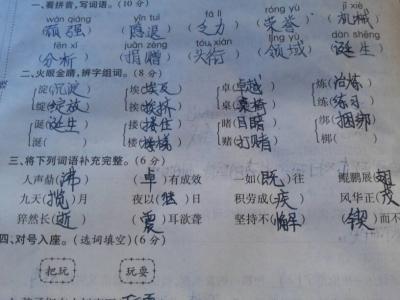 一、看拼音,写词语。(10分)
wán qiáng yǐn tuì fá lì róng yù jī xiè
顽强 隐退 乏力 荣誉 机械
fēn xī juān zèng tóu xián lǐng yù dàn shēng
分析 捐赠 头衔 领域 诞生
二、火眼金睛,辨字组词。(8分)
淀(沉淀) 埃(埃及) 卓(卓越) 炼(冶炼)
绽(绽放) 挨(挨挤) 桌(桌椅) 练(练习)
诞(诞生) 搂(搂住) 睹(目睹) 绑(捆绑)
涎( ) 楼(楼梯) 赌(打赌) 梆(
三、将下列词语补充完整。(6分)
人声鼎(沸) (卓)有成效 一如(既)往 鲲鹏展(翅
九天(揽)月 夜以(继)日 积劳成(疾) 风华正(茂
猝然长(逝) (震)耳欲聋 坚持不(懈) (锲)而不
四、对号入座。(选词填空)(6分)
把玩 玩耍